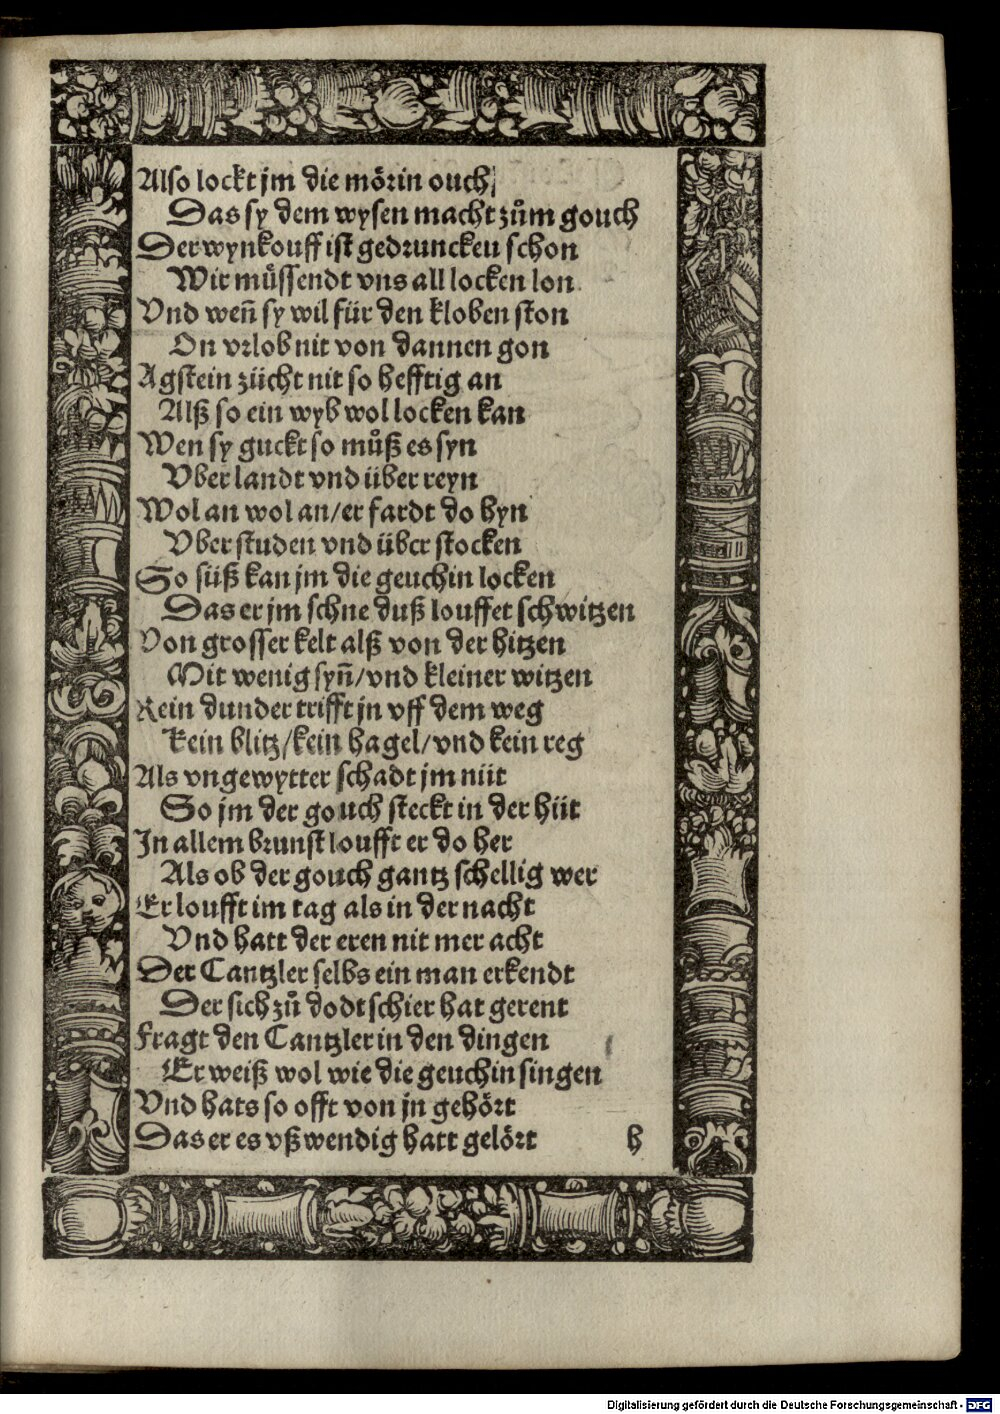 Also lockt jm die mörin ouch
Das sy dem wysen macht zům gouch
Der wynkouff ist gedruncken schon
Wir müssendt vns all locken lon
Vnd wen̄ sy wil für den kloben ston
On vrlob nit von dannen gon
Agstein zücht nit so hefftig an
Alß so ein wyb wol locken kan
Wen sy guckt so můß es syn
Vber landt vnd über reyn
Wol an wol an/er fardt do hyn
Vber studen vnd über stocken
So süß kan jm die geuchin locken
Das er jm schne duß louffet schwitzen
Von grosser kelt alß von der hitzen
Mit wenig syn̄/vnd kleiner witzen
Kein dunder trifft jn vff dem weg
Kein blitz/kein hagel/vnd kein reg
Als vngewytter schadt jm nüt
So jm der gouch steckt in der hüt
In allem brunst loufft er do her
Als ob der gouch gantz schellig wer
Er loufft im tag als in der nacht
Vnd hatt der eren nit mer acht
Der Cantzler selbs ein man erkendt
Der sich zů dodt schier hat gerent
Fragt den Cantzler in den dingen
Er weiß wol wie die geuchin singen
Vnd hats so offt von jn gehört
Das er es vßwendig hatt gelört h
Digitalisierung gefördert durch die Deutsche Forschungsgemeinschaft - DFG